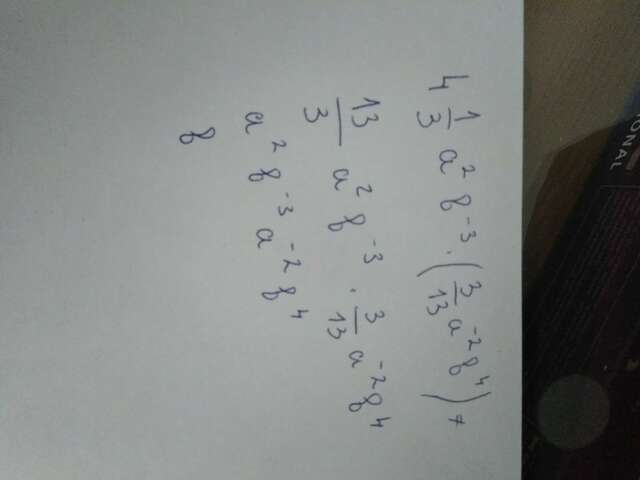 4 1/3 a² b⁻³ · (3/13 a⁻² b⁴) =
13/3 a² b⁻³ · 3/13 a⁻² b⁴
a² b⁻³ a⁻² b⁴
b
ONAL